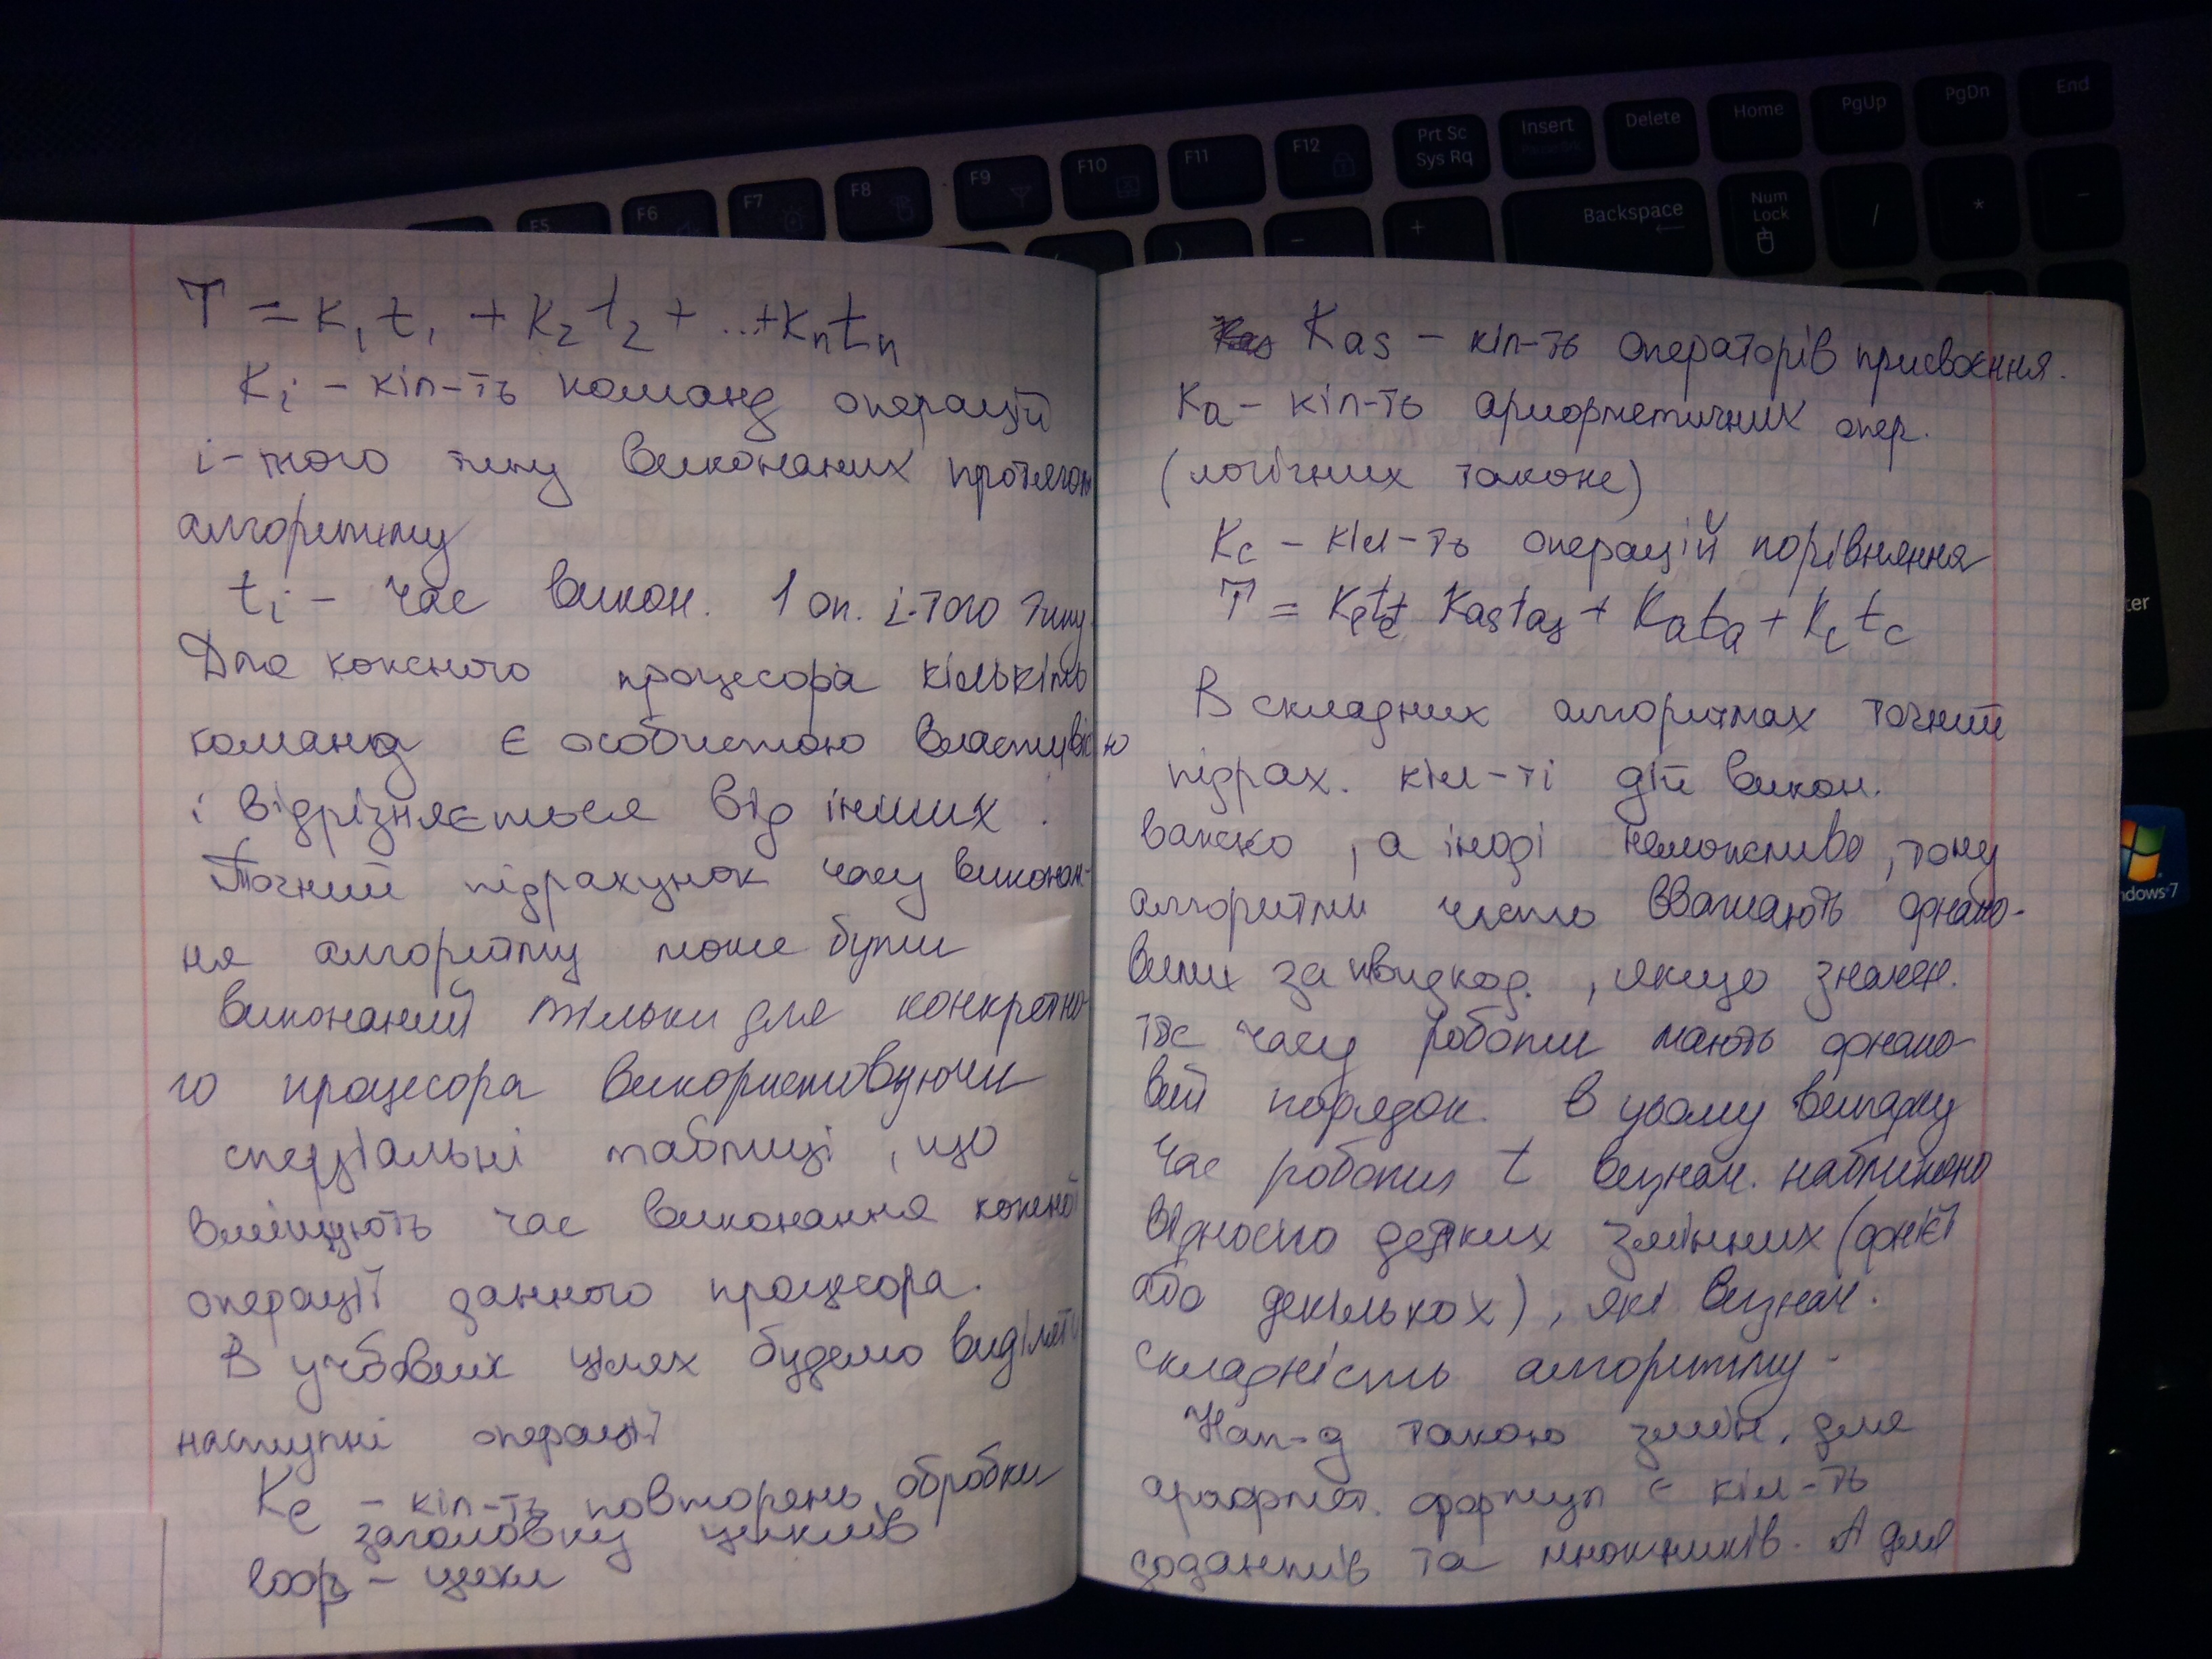 T = K₁t₁ + K₂t₂ + ... + Kₙtₙ
Kᵢ – кіл-ть команд операцій
і-того типу виконаних протягом
алгоритму
tᵢ – час викон. 1 оп. і-того типу.
Для кожного процесора кількість
команд є особистою властивістю
і відрізняється від інших.
Точний підрахунок часу виконан-
ня алгоритму може бути
виконаний тільки для конкретно-
го процесора використовуючи
спеціальні таблиці, що
вміщують час виконання кожної
операції данного процесора.
В учбових цілях будемо виділяти
наступні операції
Kℓ – кіл-ть повторень обробки
заголовку циклів
loop – цикл
Kas – кіл-ть операторів присвоєння.
Ka – кіл-ть арифметичних опер.
(логічних також)
Kc – кіл-ть операцій порівняння
T = Kℓtℓ Kastas + Kata + Kctc
В складних алгоритмах точний
підрах. кіл-ті дій викон.
важко, а іноді неможливо, тому
алгоритми часто вважають однако-
вими за швидкод., якщо значен.
їх часу роботи мають однако-
вий порядок. В цьому випадку
час роботи t визнач. наближено
відносно деяких змінних (однієї
або декількох), які визнач.
складність алгоритму.
Нап-д такою змін. для
арифмет. формул є кіл-ть
доданків та множників. А для
Prt Sc
Sys Rq
Insert
Delete
Home
PgUp
PgDn
End
F5
F6
F7
F8
F9
F10
F11
F12
Backspace
Num
Lock
/
*
-
+
ter
ndows 7